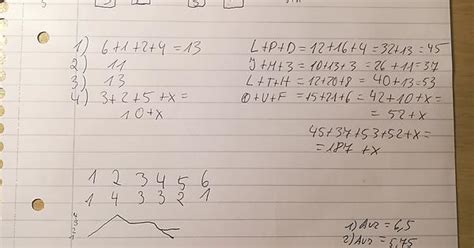 1) 6+1+2+4=13
2) 11
3) 13
4) 3+2+5+x=
10+x
L+P+D=12+16+4=32+13=45
J+M+3=10+13+3=26+11=37
L+T+H=12+20+8=40+13=53
O+U+F=15+21+6=42+10+x=
=52+x
45+37+53+52+x=
=187+x
1 2 3 4 5 6
1 4 3 3 2 1
1) Avz = 6,5
2) Avz = 5,75